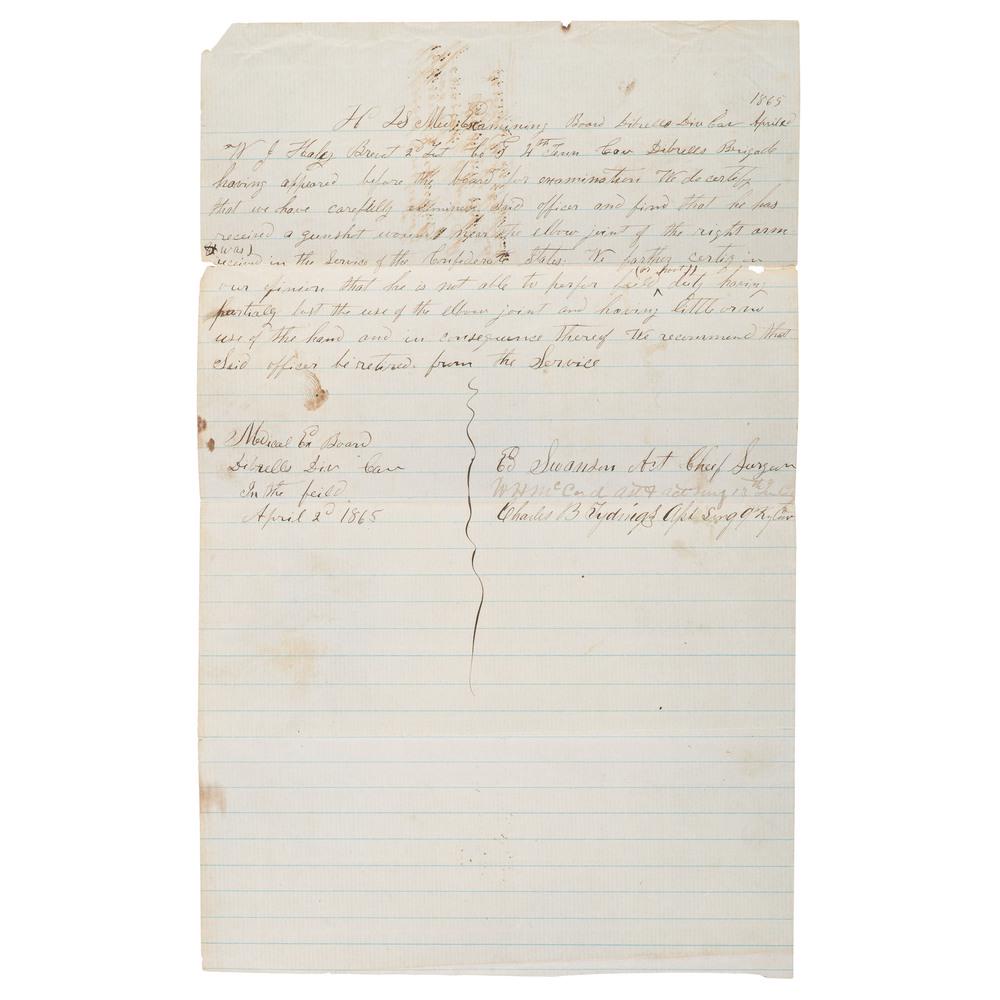 1865
H Qs Med Examining Board Dibrells Div Cav April 2d
W J Haley Brevt 2d Lt Co 4th Tenn Cav Dibrells Brigade
having appeared before the board for examination We do certify
that we have carefully examined said officer and find that he has
received a gunshot wound near the elbow joint of the right arm
(was)
received in the Service of the Confederate States. We farther certify in
(or post)
our opinion that he is not able to perfor feild duty having
partialy lost the use of the elbow joint and having little or no
use of the hand and in consequence thereof We recommend that
Said officer be retired from the Service
Medical Ex Board
Dibrells Div Cav
In the feild
April 2d 1865
Ed Swanson Act Cheef Surgeon
W H McCord asst act surg 13th
Charles B Tydings Asst Surg 9 Ky Cav